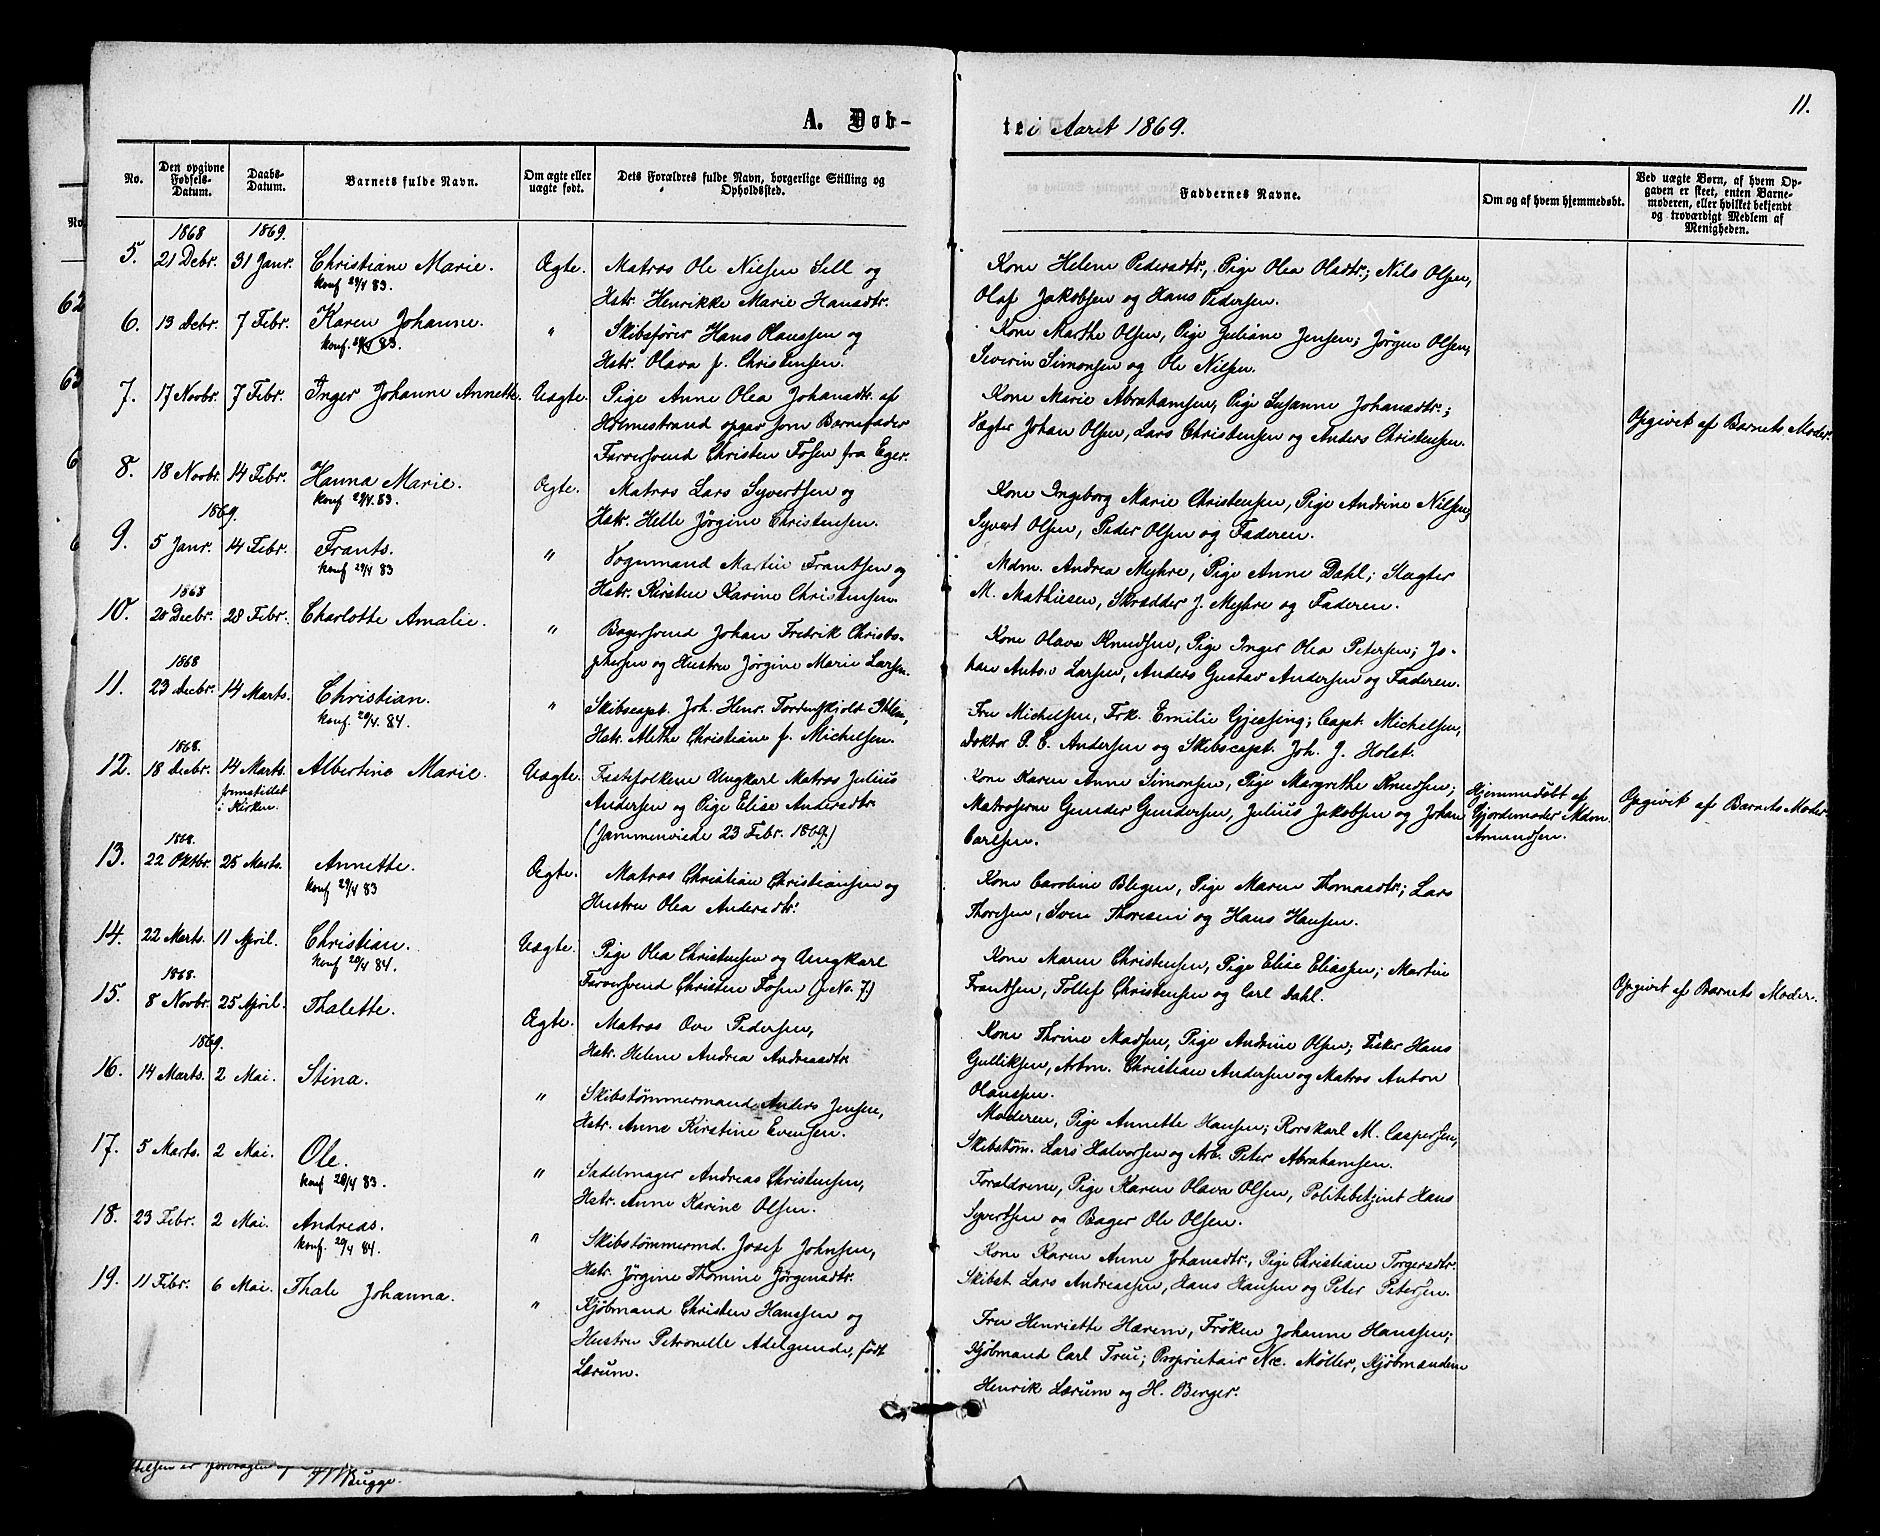 11.
A. Døb-
te i Aaret 1869.
No.
Den opgivne Fødsels-Datum.
Daabs-Datum.
Barnets fulde Navn.
Om ægte eller uægte født.
Dets Forældres fulde Navn, borgerlige Stilling og Opholdssted.
Faddernes Navne.
Om og af hvem hjemmedøbt.
Ved uægte Børn, af hvem Opgaven er skeet, enten Barnemoderen, eller hvilket bekjendt og troværdigt Medlem af Menigheden.
1868 1869.
5. 21 Debr. 31 Janr. Christiane Marie. Ægte. Matros Ole Nilsen Sell og
konf 29/4 83. Hstr. Henrikke Marie Hansdtr.
Kone Helene Pedersdtr., Pige Olea Olsdtr.; Nils Olsen,
Olaf Jakobsen og Hans Pedersen.
6. 13 Debr. 7 Febr. Karen Johanne. " Skibsfører Hans Olaussen og
konf. 29/4 83. Hstr. Olava f. Christensen.
Kone Marthe Olsen, Pige Juliane Jensen; Jørgen Olsen,
Severin Simonsen og Ole Nilsen.
7. 17 Novbr. 7 Febr. Inger Johanne Annette. Uægte. Pige Anne Olea Johansdtr. af
Holmestrand opgav som Barnefader
Farversvend Christen Fosen fra Eger.
Kone Marie Abrahamsen, Pige Susanne Johansdtr.;
Vægter Johan Olsen, Lars Christensen og Anders Christensen.
Opgivet af Barnets Moder.
8. 18 Novbr. 14 Febr. Hanna Marie. Ægte. Matros Lars Syvertsen og
konf 29/4 83. Hstr. Helle Jørgine Christensen.
Kone Ingeborg Marie Christensen, Pige Andrine Nilsen,
Syvert Olsen, Peder Olsen og Faderen.
1869.
9. 5 Janr. 14 Febr. Frants. " Vognmand Martin Frantsen og
konf 29/4 83 Hstr. Kirsten Karine Christensen.
Mdm. Andrea Myhre, Pige Anne Dahl; Slagter
M. Mathiesen, Skrædder J. Myhre og Faderen.
1868
10. 20 Decbr. 28 Febr. Charlotte Amalie. " Bagersvend Johan Fredrik Christo-
phersen og Hustru Jørgine Marie Larsen.
Kone Olava Knudsen, Pige Inger Olea Petersen; Jo-
han Larsen, Anders Gustav Andersen og Faderen.
1868
11. 23 Decbr. 14 Marts. Christian. " Skibscapt. Joh. Henr. Tordenskjold
konf. 20/4. 84. Hstr. Alethe Christiane f. Michelsen.
Fru Michelsen, Frk. Emilie Gjessing; Capt. Michelsen,
Doktor P. C. Andersen og Skibscapt. Joh. J. Holst.
1868.
12. 18 Decbr. 14 Marts. Albertine Marie. Uægte. Festefolkene Ungkarl Matros Julius
fremstillet i Kirken. Andersen og Pige Elise Andersdtr.
(Sammenviede 23 Febr. 1869.)
Kone Karen Anne Simonsen, Pige Margrethe Knudsen;
Matroserne Gunder Gundersen, Julius Jakobsen og Johan
Carlsen.
Hjemmedøbt af Gjordemoder Mdm. Amundsen.
Opgivet af Barnets Moder.
1868.
13. 22 Oktbr. 25 Marts. Annette. Ægte. Matros Christian Christiansen og
konf 29/4 83 Hustru Olea Andersdtr.
Kone Caroline Blegen, Pige Maren Thomasdtr.; Lars
Thoresen, Sven Thoresen og Hans Hansen.
14. 22 Marts. 11 April. Christian. Uægte. Pige Olea Christensen og Ungkarl
konf 20/4 84. Farversvend Christen Fosen (f. No. 7.)
Kone Maren Christensen, Pige Elise Eliassen; Martin
Frantsen, Tollef Christensen og Carl Dahl.
Opgivet af Barnets Moder.
1868.
15. 8 Novbr. 25 April. Thalette. Ægte. Matros Ove Pedersen,
Hstr. Helene Andrea Andreasdtr.
Kone Thrine Madsen, Pige Andrine Olsen; Fisker Hans
Gulliksen, Arbm. Christian Andersen og Matros Anton
Olaussen.
1869.
16. 14 Marts. 2 Mai. Stina. " Skibstømmermand Anders Jensen,
Hstr. Anne Kirstine Evensen.
Moderen, Pige Annette Hansen; Rorskarl M. Caspersen,
Skibstøm. Lars Halvorsen og Arb. Peter Abrahamsen.
17. 5 Marts. 2 Mai. Ole. " Sadelmager Andreas Christensen,
konf 28/4 83. Hstr. Anne Karine Olsen.
Forældrene, Pige Karen Olava Olsen, Politibetjent Hans
Syvertsen og Bager Ole Olsen.
18. 23 Febr. 2 Mai. Andreas. " Skibstømmermd. Josef Johnsen,
konf. 20/4 84. Hstr. Jørgine Thomine Jørgensdtr.
Kone Karen Anne Johansdtr., Pige Christiane Torgersdtr.
Skibst. Lars Andreassen, Hans Hansen og Peter Petersen.
19. 11 Febr. 6 Mai. Thale Johanna. " Kjøbmand Christen Hanssen og
Hustru Petronelle Adelgunde, født
Lærum.
Fru Henriette Hærem, Frøken Johanne Hanssen;
Kjøbmand Carl Treu; Proprietair Nic. Møller, Kjøbmændene
Henrik Lærum og H. Berger.
No.
62
63
6
6
Bugge.